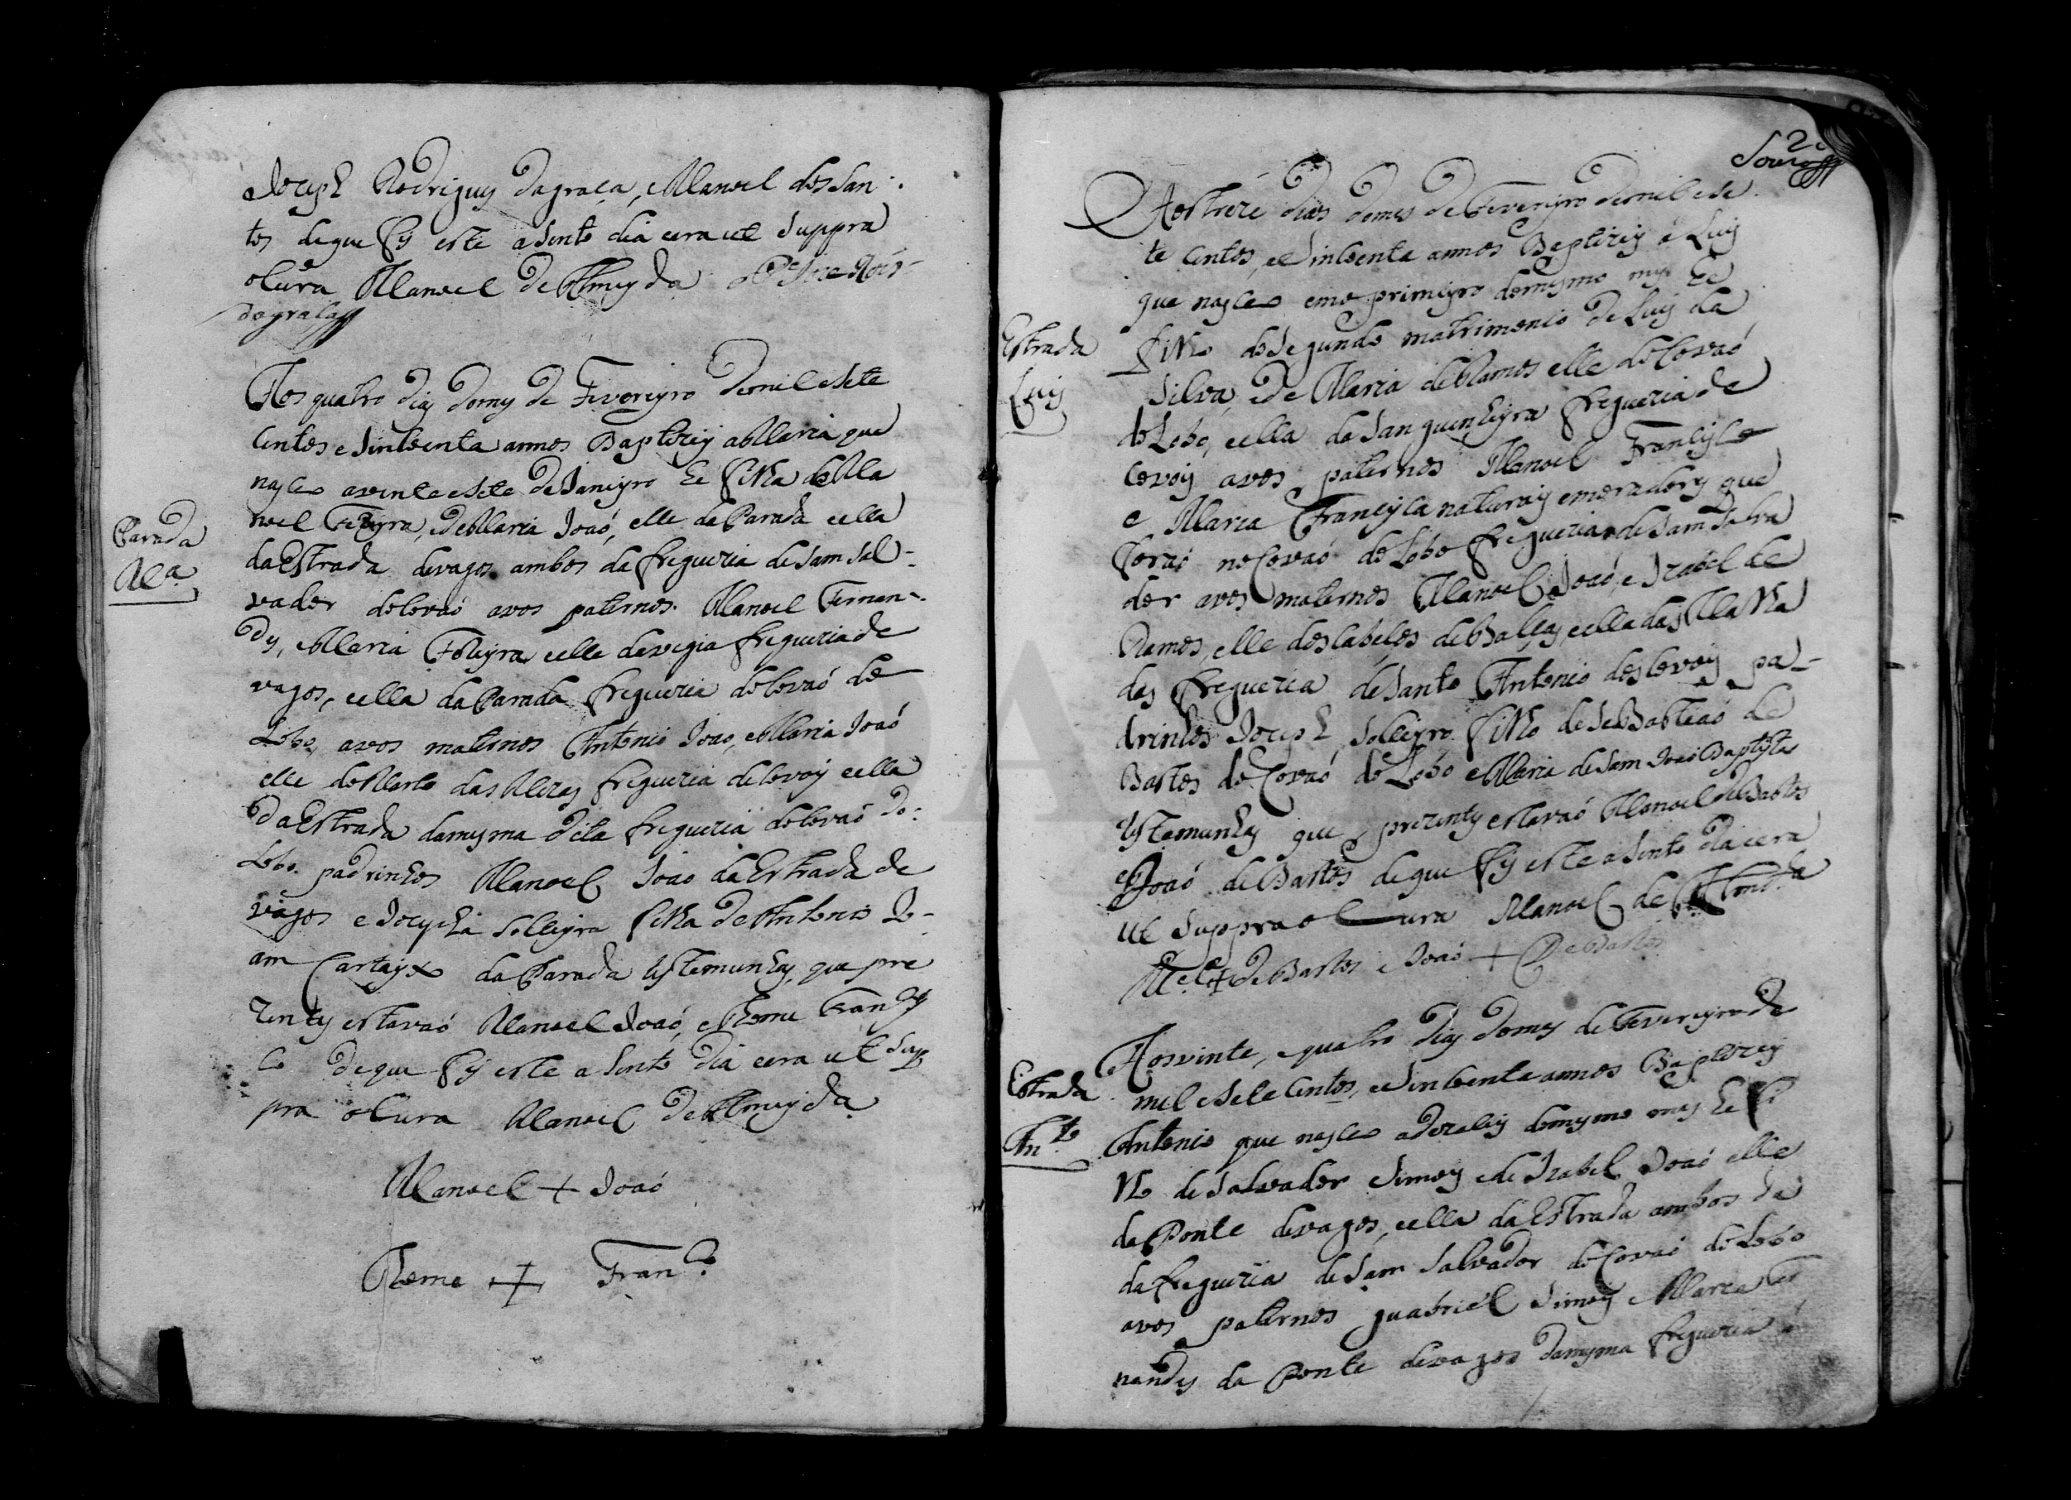 Joseph Rodriguis dagraça, eManoel dos San-
tos deque fis este aSento dia eera ut Suppra
oCura Manoel DeAlmeyda oPe Joze Roiz
dagraça
Aos quatro dias domes de Fevereyro demil eSete
Centos eSincoenta annos Baptizey aMaria que
nasceo avinte eSete deJaneyro he filha deMa
noel Folleyra, edeMaria Joaó, elle da Parada eella
daEstrada devagos ambos da freguezia deSam Sal-
vador doCovaó avos paternos Manoel Fernan-
des, eMaria Folleyra, elle davigia freguezia de
vagos, eella daParada freguezia doCovaó do
Lobo, avos maternos Antonio Joao, eMaria Joaó
elle doMarto das Meras freguezia deCovois eella
DaEstrada damesma dita freguezia doCovaó do
Lobo. padrinhos Manoel Joao daEstrada de
vagos e Josepha Solleyra filha deAntonio Jo-
am Cartaxo daParada testemunhas que pre
zentes estavaó Manoel Joaó, eThome Francis
co deque fis este aSento dia eera ut Sup
pra oCura Manoel DeAlmeyda
Manoel + Joaó
Thome + Franco
Parada
Ma
2
Souza
Aos treze dias domes deFevereyro demil eSe
te Centos, eSincoenta annos Baptizey a Luis
que nasceo emo primeyro domesmo mes he
filho doSegundo matrimonio deLuis da
Silva, edeMaria deRamos elle doCovaó
doLobo, eella da Sanguinheyra freguezia de
Covois avos paternos Manoel Francisco
e Maria Francisca naturais emoradores que
foraó noCovaó doLobo freguezia deSam Salva
dor avos maternos Manoel Joaó, e Izabel de
Ramos, elle dosCabesos deBalsas, eella dasMalha
das freguezia deSanto Antonio dosCovois pa-
drinhos Joseph Solleyro filho deSeBastiaó de
Bastos doCovaó do Lobo eMaria deSam JoaóBaptista
testemunhas que prezentes estavaó Manoel deBastos
eJoaó deBastos deque fis este aSento dia eera
ut Suppra oCura Manoel deAlmda
Mel + deBastos e Joaó + DeBastos
Estrada
Luis
Aos vinte, equatro dias domes deFevereyro de
mil eSeteCentos, eSincoenta annos Baptizey
Antonio que nasceo adezaseis domesmo mes he fi
lho deSalvador Simois edeIzabel Joaó elle
daPonte devagos, eella daEstrada ambos da
dafreguezia deSam Salvador doCovaó doLobo
avos paternos guabriel Simois eMaria Fer
nandes da Ponte devagos damesma freguezia
Estrada
Anto